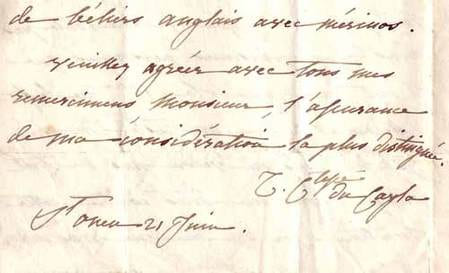 de béliers anglais avec mérinos.
veuillez agréer avec tous mes
remercimens monsieur, l'assurance
de ma considération la plus distinguée.
C.tesse du Cayla
St ouen 21 Juin.